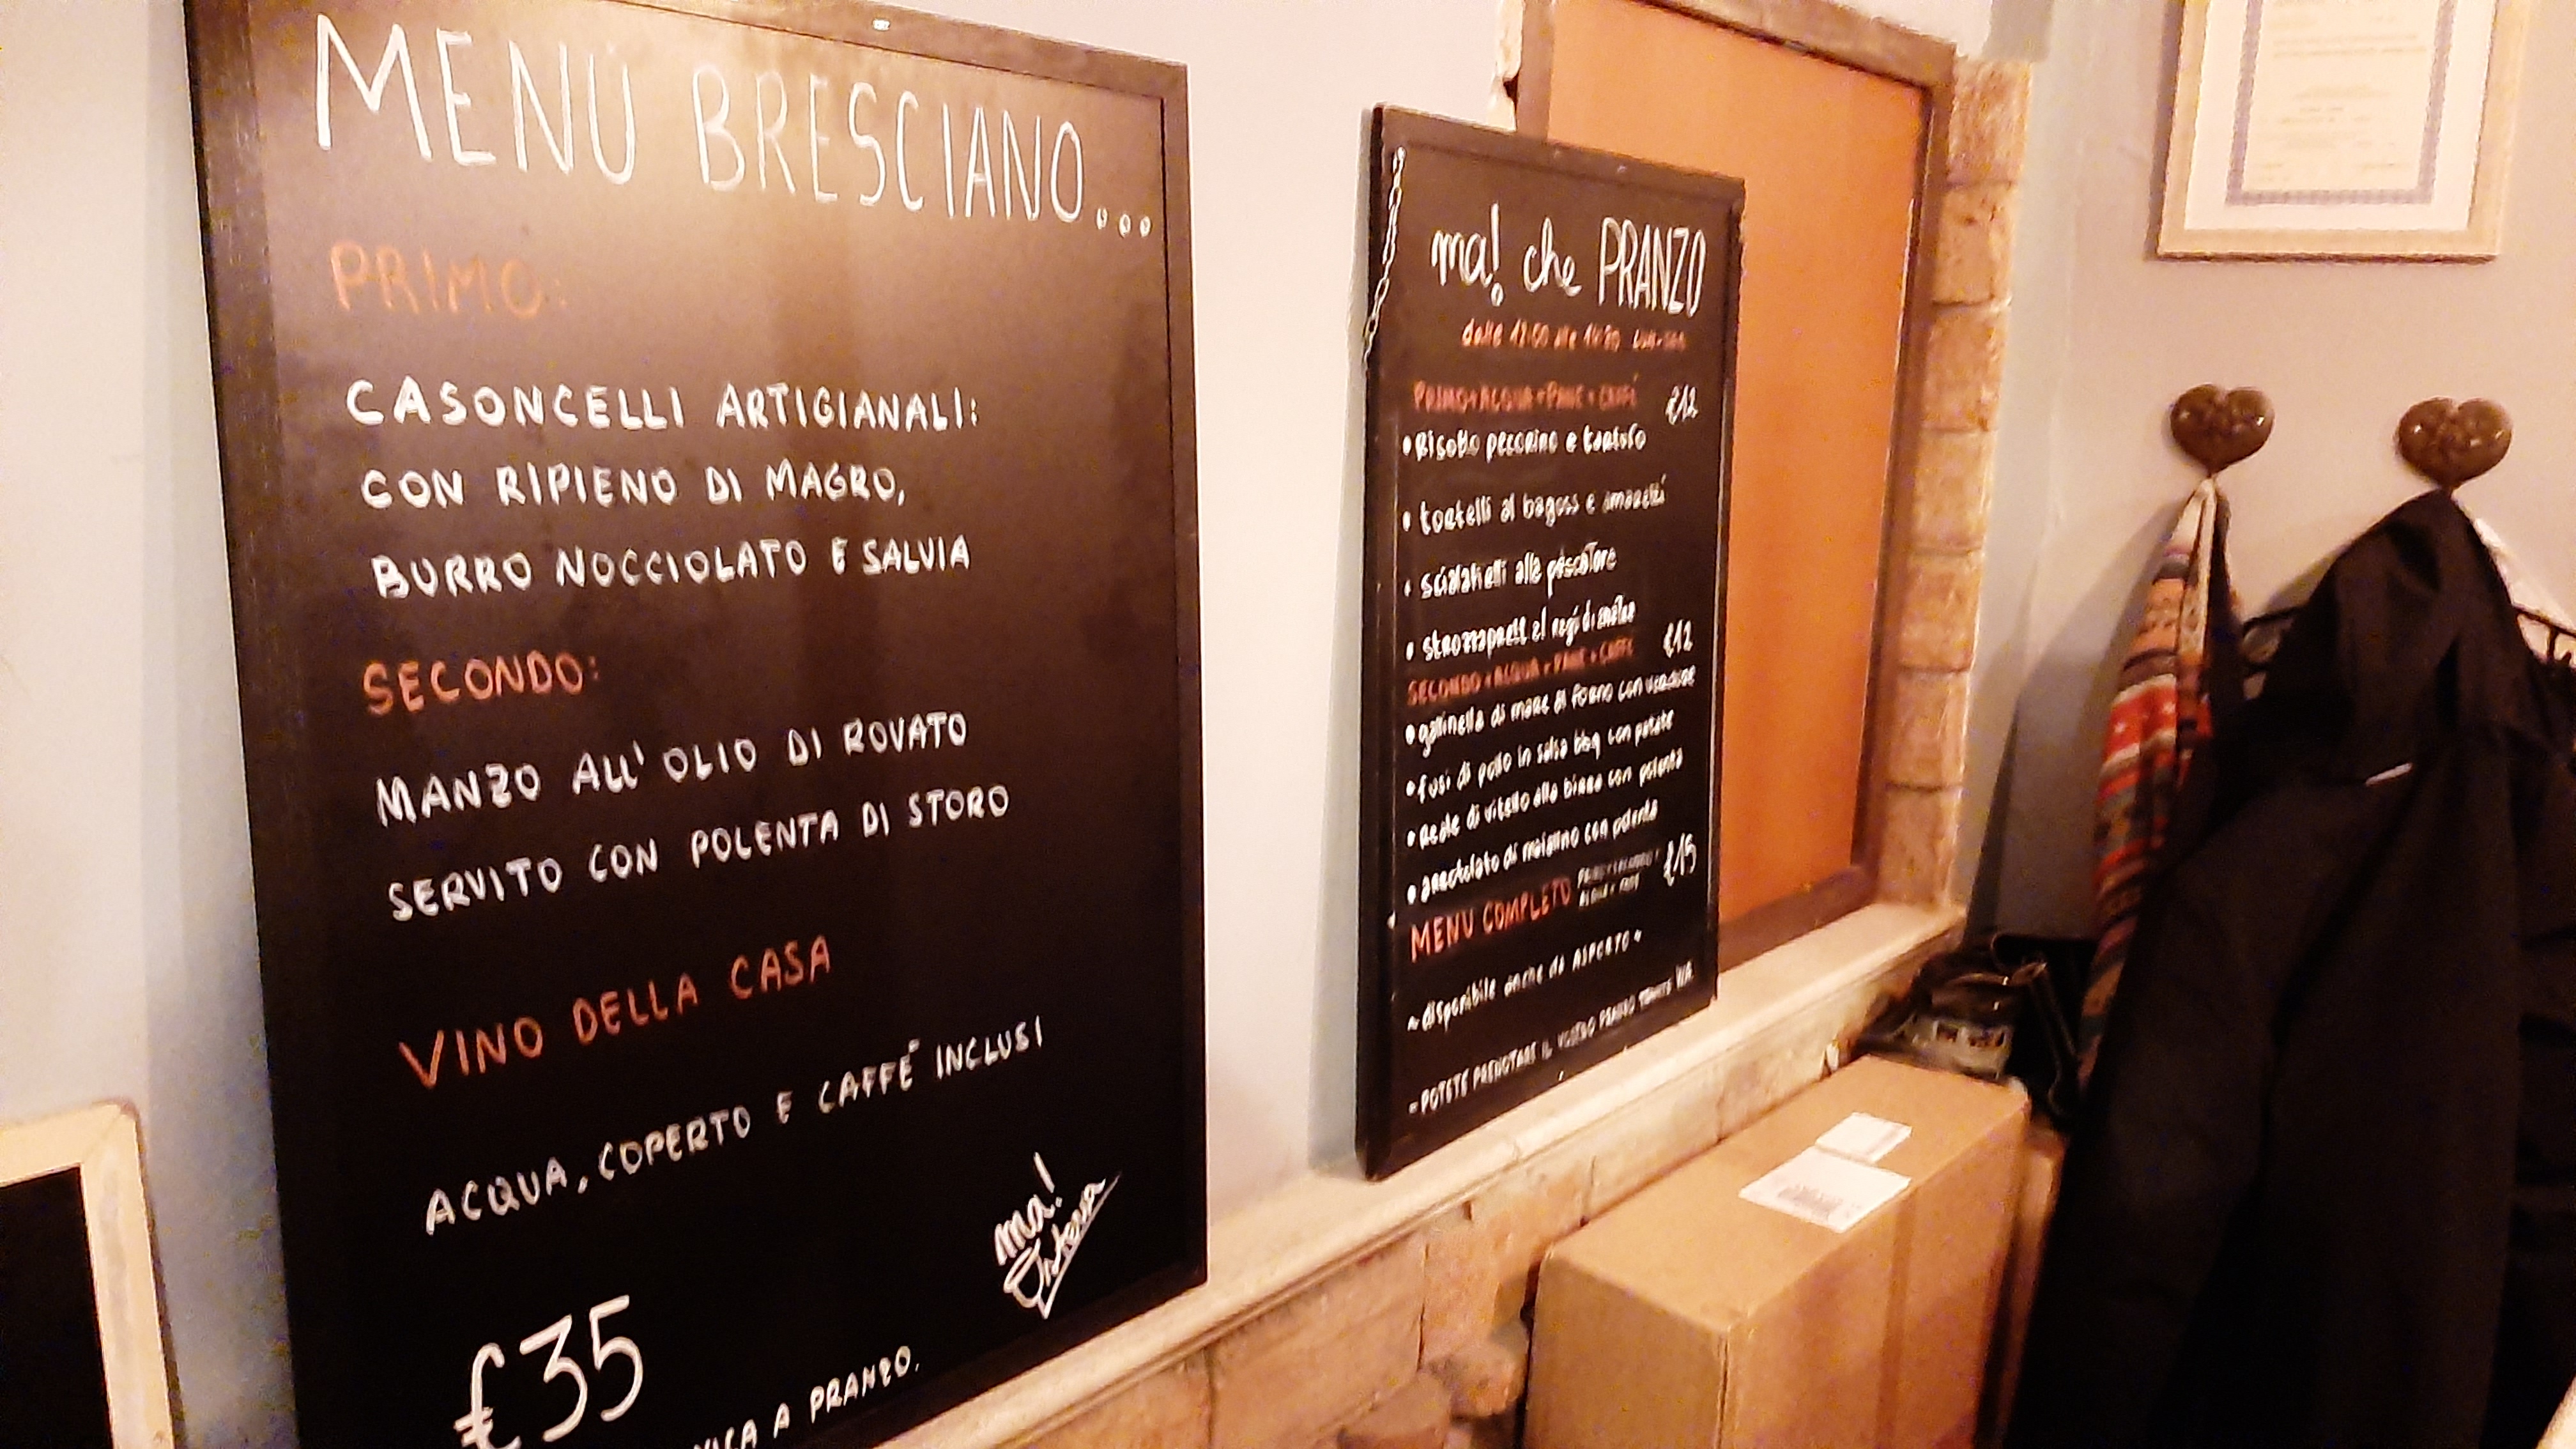 MENÚ BRESCIANO...
PRIMO:
CASONCELLI ARTIGIANALI:
CON RIPIENO DI MAGRO,
BURRO NOCCIOLATO E SALVIA
SECONDO:
MANZO ALL'OLIO DI ROVATO
SERVITO CON POLENTA DI STORO
VINO DELLA CASA
ACQUA, COPERTO E CAFFÈ INCLUSI
ma!
€35
A PRANZO.
ma! che PRANZO
dalle 12:00 alle
PRIMO+ACQUA+PANE+CAFFÈ €12
• Risotto pecorino e tartufo
• tortelli al bagoss e amaretti
• scialatielli alla pescatore
• strozzapreti al ragù di
SECONDO+ACQUA+PANE+CAFFÈ €12
• gallinella di mare al forno con verdure
• fusi di pollo in salsa bbq con patate
• Reale di vitello alla birra con polenta
• arrotolato di maialino con polenta
MENU COMPLETO €15
~ disponibile anche da ASPORTO ~
- POTETE PRENOTARE IL VOSTRO PRANZO TRAMITE WA